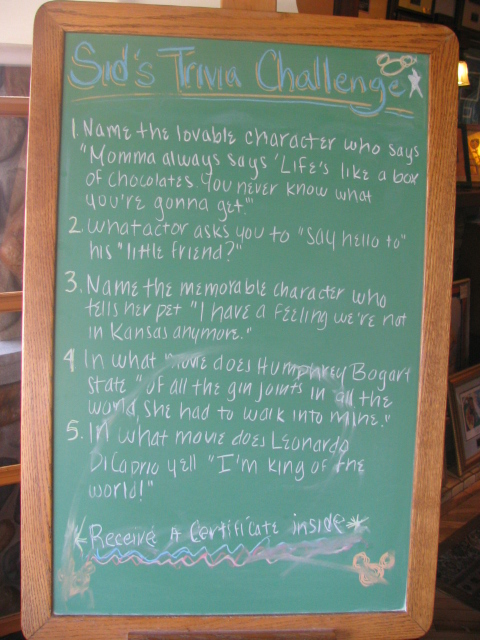 Sid's Trivia Challenge
1. Name the lovable character who says
"Momma always says 'Life's like a box
of chocolates. You never know what
you're gonna get.'"
2. What actor asks you to "say hello to"
his "little friend?"
3. Name the memorable character who
tells her pet "I have a feeling we're not
in Kansas anymore."
4 In what movie does Humphrey Bogart
state "of all the gin joints in all the
world, she had to walk into mine."
5. In what movie does Leonardo
DiCaprio yell "I'm king of the
world!"
*Receive A Certificate inside*